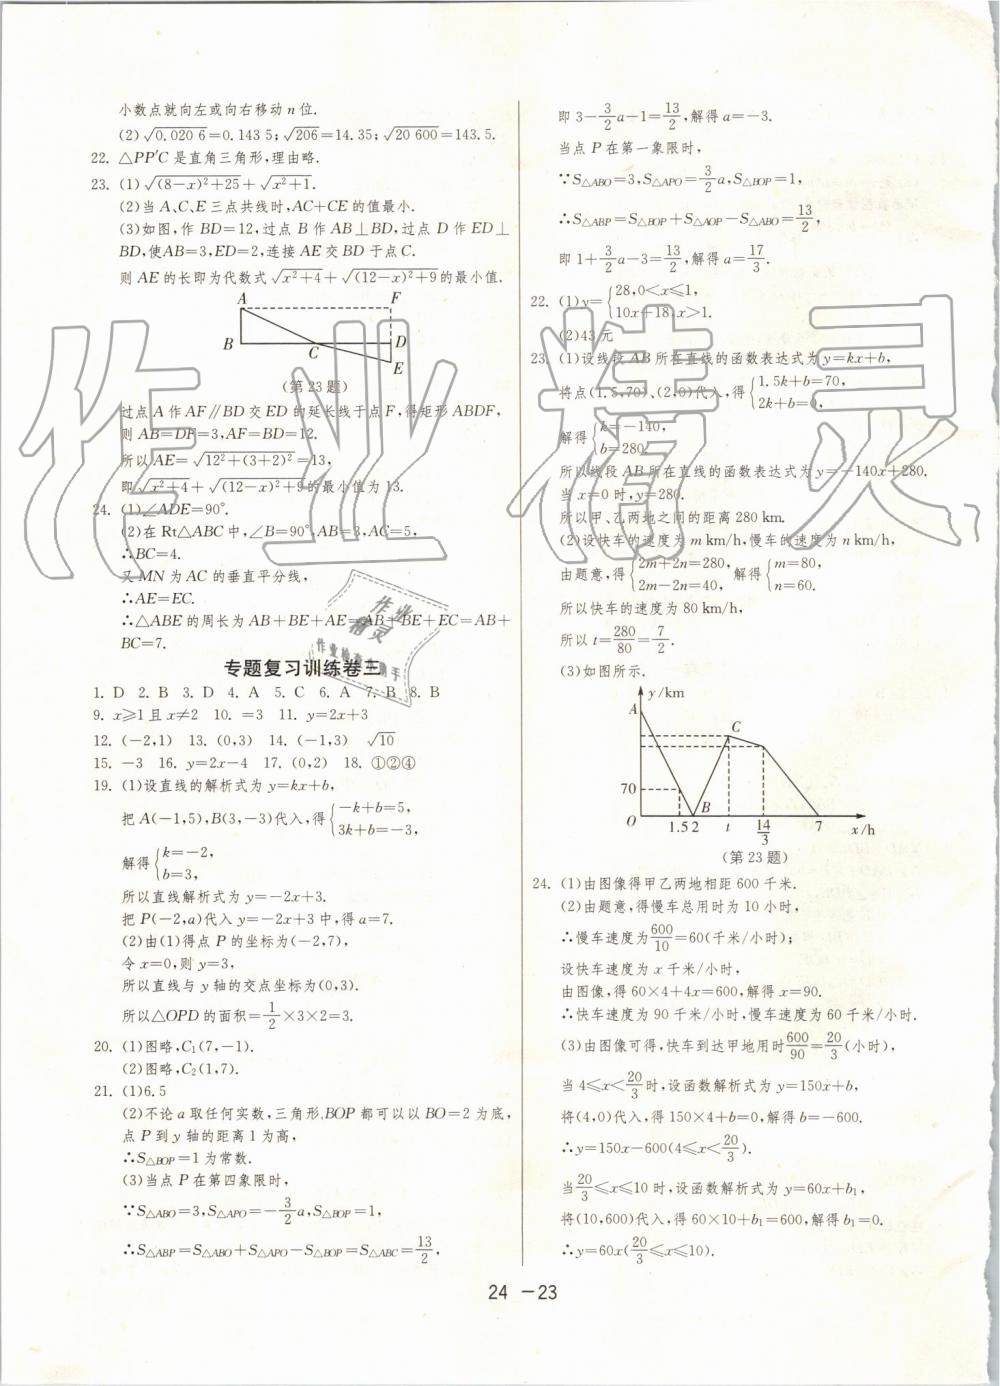 小数点就向左或向右移动n位.
(2)√0.0206=0.1435;√206=14.35;√20600=143.5.
22. △PP′C是直角三角形,理由略.
23. (1)√(8-x)²+25+√x²+1.
(2)当A、C、E三点共线时,AC+CE的值最小.
(3)如图,作BD=12,过点B作AB⊥BD,过点D作ED⊥
BD,使AB=3,ED=2,连接AE交BD于点C.
则AE的长即为代数式√x²+4+√(12-x)²+9的最小值.
A F
B C D
E
(第23题)
过点A作AF∥BD交ED的延长线于点F,得矩形ABDF,
则AB=DF=3,AF=BD=12.
所以AE=√12²+(3+2)²=13,
即√x²+4+√(12-x)²+9的最小值为13.
24. (1)∠ADE=90°.
(2)在Rt△ABC中,∠B=90°,AB=3,AC=5,
∴BC=4.
又MN为AC的垂直平分线,
∴AE=EC.
∴△ABE的周长为AB+BE+AE=AB+BE+EC=AB+
BC=7.
专题复习训练卷三
1. D 2. B 3. D 4. A 5. C 6. A 7. B 8. B
9. x⩾1且x≠2 10. =3 11. y=2x+3
12. (-2,1) 13. (0,3) 14. (-1,3) √10
15. -3 16. y=2x-4 17. (0,2) 18. ①②④
19. (1)设直线的解析式为y=kx+b,
把A(-1,5),B(3,-3)代入,得{-k+b=5,
3k+b=-3,
解得{k=-2,
b=3,
所以直线解析式为y=-2x+3.
把P(-2,a)代入y=-2x+3中,得a=7.
(2)由(1)得点P的坐标为(-2,7),
令x=0,则y=3,
所以直线与y轴的交点坐标为(0,3).
所以△OPD的面积=1/2×3×2=3.
20. (1)图略,C₁(7,-1).
(2)图略,C₂(1,7).
21. (1)6.5
(2)不论a取任何实数,三角形BOP都可以以BO=2为底,
点P到y轴的距离1为高,
∴S△BOP=1为常数.
(3)当点P在第四象限时,
∵S△ABO=3,S△APO=-3/2a,S△BOP=1,
∴S△ABP=S△ABO+S△APO-S△BOP=S△ABC=13/2,
即3-3/2a-1=13/2,解得a=-3.
当点P在第一象限时,
∵S△ABO=3,S△APO=3/2a,S△BOP=1,
∴S△ABP=S△BOP+S△AOP-S△ABO=13/2,
即1+3/2a-3=13/2,解得a=17/3.
22. (1)y={28,0<x⩽1,
10x+18,x>1.
(2)43元
23. (1)设线段AB所在直线的函数表达式为y=kx+b,
将点(1.5,70)、(2,0)代入,得{1.5k+b=70,
2k+b=0,
解得{k=-140,
b=280.
所以线段AB所在直线的函数表达式为y=-140x+280.
当x=0时,y=280.
所以甲、乙两地之间的距离280 km.
(2)设快车的速度为m km/h,慢车的速度为n km/h,
由题意,得{2m+2n=280,
2m-2n=40,解得{m=80,
n=60.
所以快车的速度为80 km/h,
所以t=280/80=7/2.
(3)如图所示.
y/km
A
C
70
B
O 1.5 2 t 14/3 7 x/h
(第23题)
24. (1)由图像得甲乙两地相距600千米.
(2)由题意,得慢车总用时为10小时,
∴慢车速度为600/10=60(千米/小时);
设快车速度为x千米/小时,
由图像,得60×4+4x=600,解得x=90.
∴快车速度为90千米/小时,慢车速度为60千米/小时.
(3)由图像可得,快车到达甲地用时600/90=20/3(小时),
当4⩽x<20/3时,设函数解析式为y=150x+b,
将(4,0)代入,得150×4+b=0,解得b=-600.
∴y=150x-600(4⩽x<20/3).
当20/3⩽x⩽10时,设函数解析式为y=60x+b₁,
将(10,600)代入,得60×10+b₁=600,解得b₁=0.
∴y=60x(20/3⩽x⩽10).
24 -23
作业精灵
作业
精灵
作业检查小助手